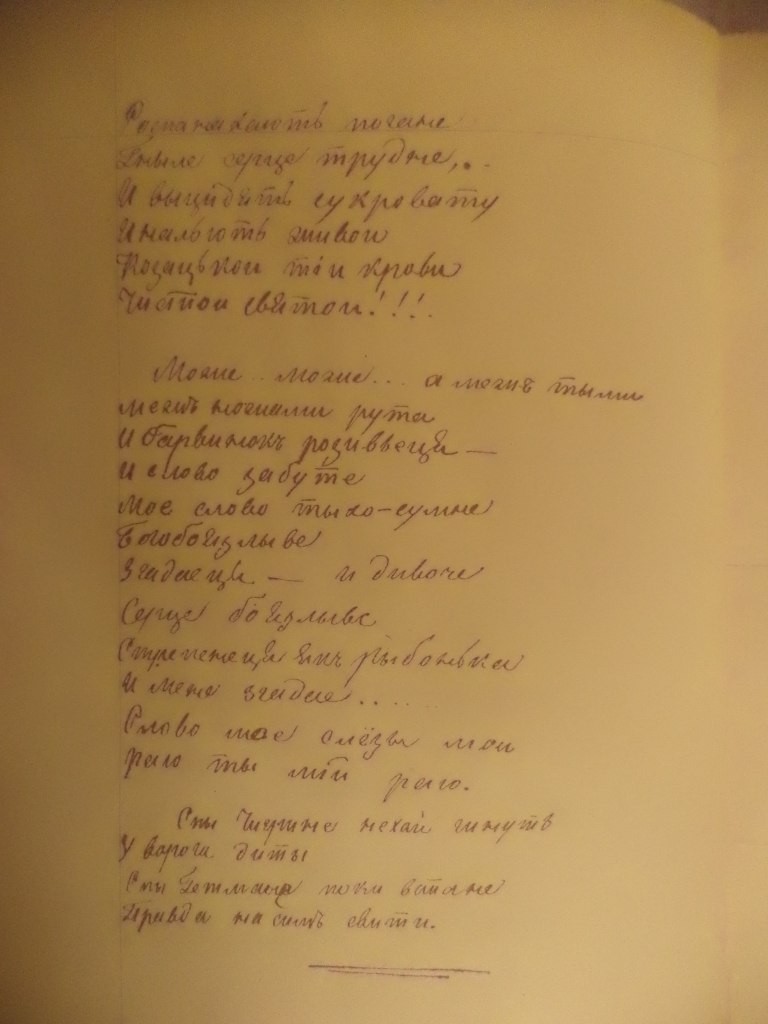 Роспанахають погане
Гныле серце трудне,..
И выцидять сукровату
И нальють живои
Козацькои тіи крови
Чистои святои!!!.
Може.. може... а межъ тыми
межъ ножами рута
И барвинокъ розивьеця —
И слово забуте
Мое слово тыхо-сумне
Богобоязлыве
Згадаеця — и дивоче
Серце боязлыве
Стрепенеця якъ рыбонька
И мене згадае.....
Слово мое слёзы мои
Раю ты мій раю.
Спы Чигрине нехай гинуть
У ворога диты
Спы Гетмане поки встане
Правда на симъ свити.